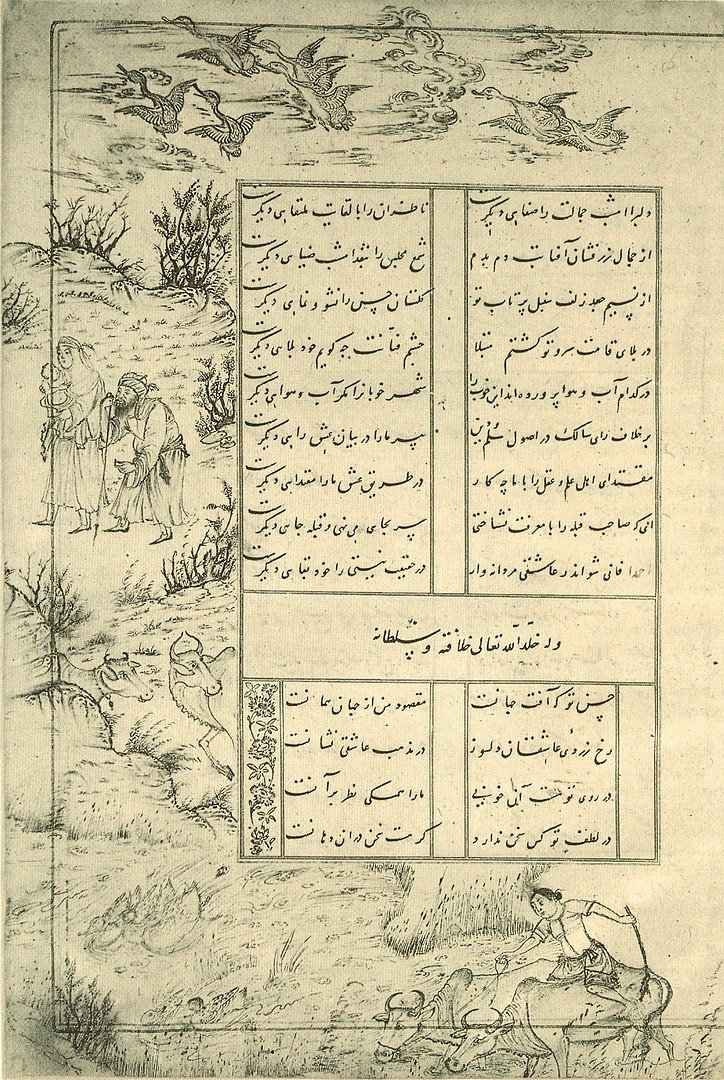 دلبرا امشب جمالت را صفایی دیگرست ناظران را با لقایت ملتقایی دیگرست
از جمال زرفشان آفتابت دم بدم شمع مجلس را ضیایی دیگرست
از نسیم جعد زلف سنبل پرتاب تو گلستان حسن را نشو و نمایی دیگرست
در بلای قامت سرو تو گشتم مبتلا چشم فتانت چه گویم خود بلایی دیگرست
در کدام آب و هوا پرورده‌اند این خوب را شهر خوبانرا مگر آب و هوایی دیگرست
بر خلاف رای سالک در اصول علم و دین پیر ما را در بیان عشق رایی دیگرست
مقتدای اهل علم و عقل را با ما چه کار در طریق عشق ما را مقتدایی دیگرست
ای که صاحب قبله را با معرفت نشناختی سر بجای می نهی و قبله جایی دیگرست
احمدا فانی شو اندر عاشقی مردانه وار در عقیب نیستی را خود بقایی دیگرست
وله خلد الله تعالی خلافته و سلطانه
حسن تو که آفت جهانست مقصود من از جهان همانست
رخ زردی عاشقان دلسوز در مذهب عاشقی نشانست
در روی تو هست آنی خوبی ما را همگی نظر بر آنست
در لطف تو کس سخن ندارد گر هست سخن در آن دهانست